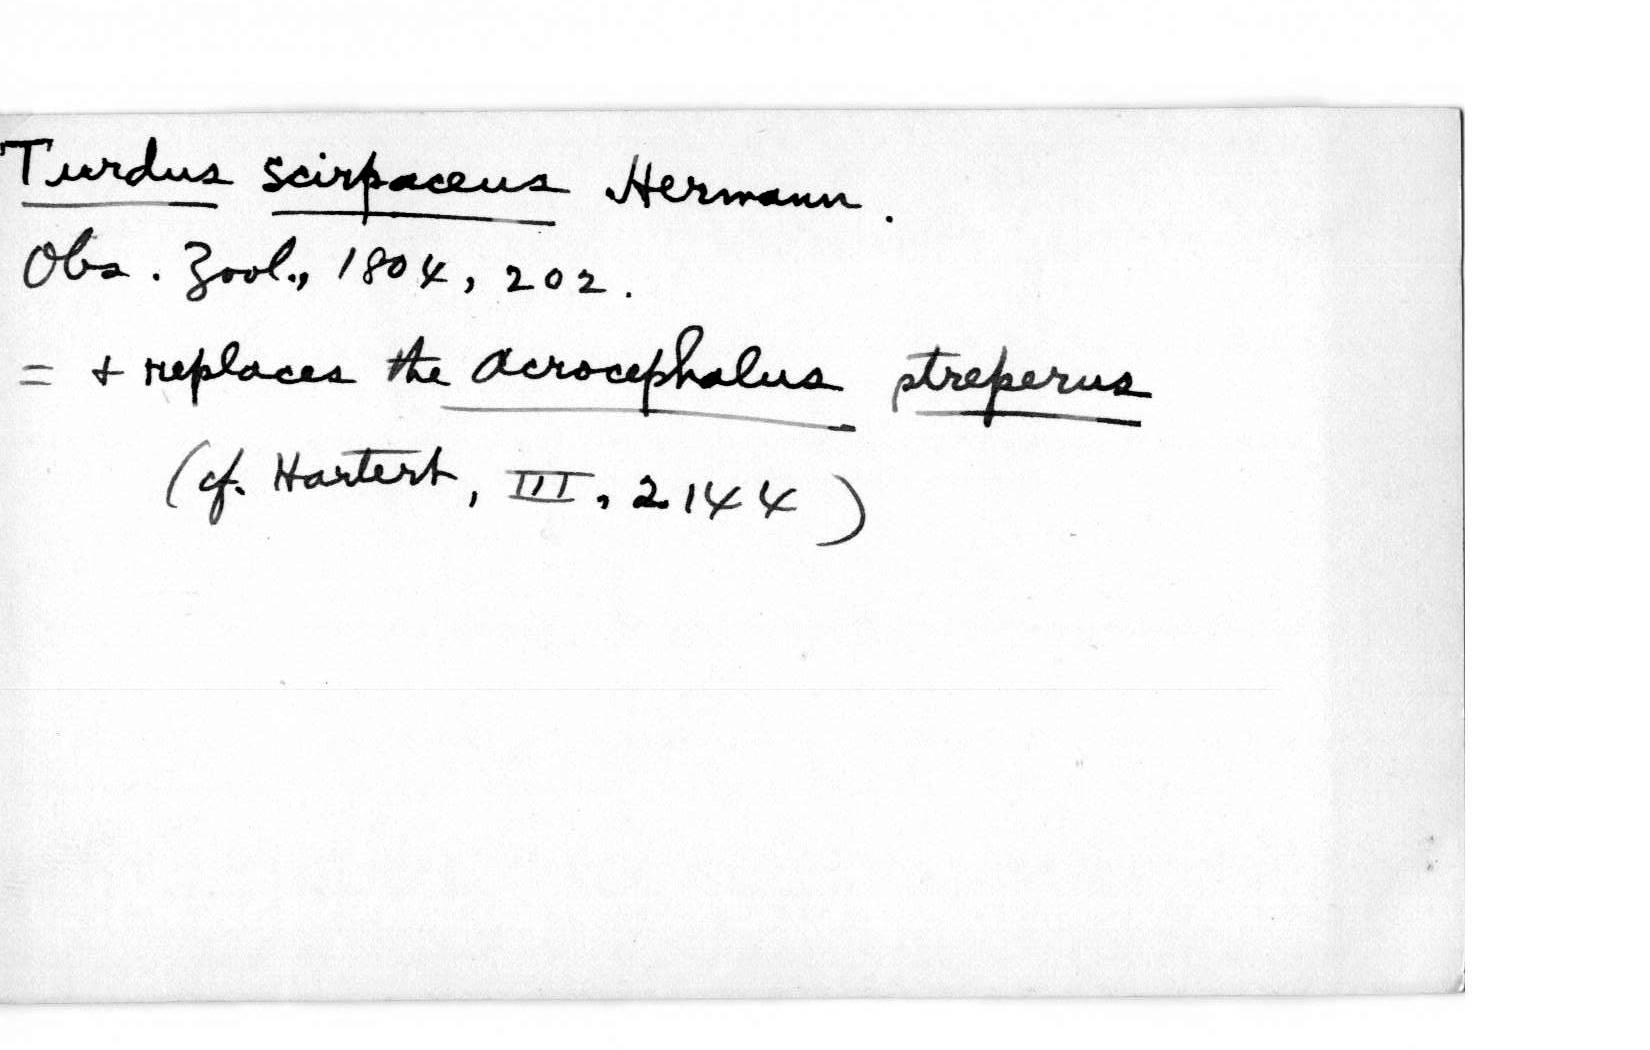 Turdus scirpaceus Hermann.
Obs. Zool., 1804, 202.
= + replaces the Acrocephalus streperus
(cf. Hartert, III, 2144)